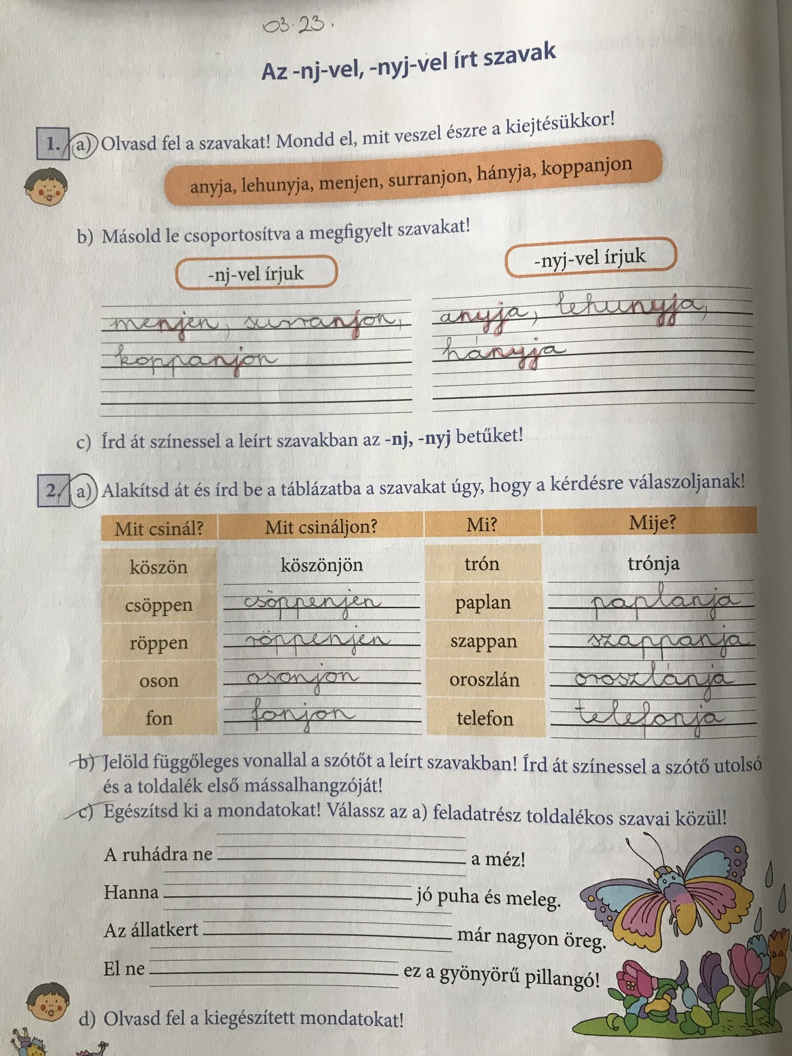 03.23.
Az -nj-vel, -nyj-vel írt szavak
1. a) Olvasd fel a szavakat! Mondd el, mit veszel észre a kiejtésükkor!
anyja, lehunyja, menjen, surranjon, hányja, koppanjon
b) Másold le csoportosítva a megfigyelt szavakat!
-nj-vel írjuk -nyj-vel írjuk
menjen, surranjon, anyja, lehunyja,
koppanjon hányja
c) Írd át színessel a leírt szavakban az -nj, -nyj betűket!
2. a) Alakítsd át és írd be a táblázatba a szavakat úgy, hogy a kérdésre válaszoljanak!
Mit csinál? Mit csináljon? Mi? Mije?
köszön köszönjön trón trónja
csöppen csöppenjen paplan paplanja
röppen röppenjen szappan szappanja
oson osonjon oroszlán oroszlánja
fon fonjon telefon telefonja
b) Jelöld függőleges vonallal a szótőt a leírt szavakban! Írd át színessel a szótő utolsó
és a toldalék első mássalhangzóját!
c) Egészítsd ki a mondatokat! Válassz az a) feladatrész toldalékos szavai közül!
A ruhádra ne a méz!
Hanna jó puha és meleg.
Az állatkert már nagyon öreg.
El ne ez a gyönyörű pillangó!
d) Olvasd fel a kiegészített mondatokat!